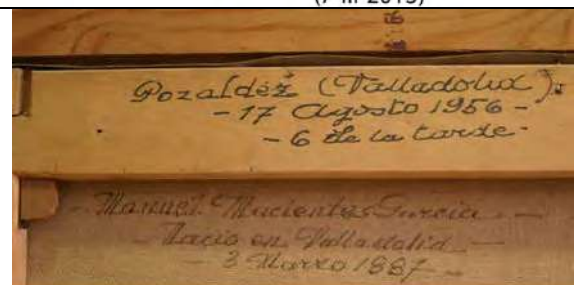 Pozaldéz (Valladolid).
- 17 Agosto 1956 -
- 6 de la tarde -
- Manuel Mucientes García -
- Nació en Valladolid -
- 3 Marzo 1887 -